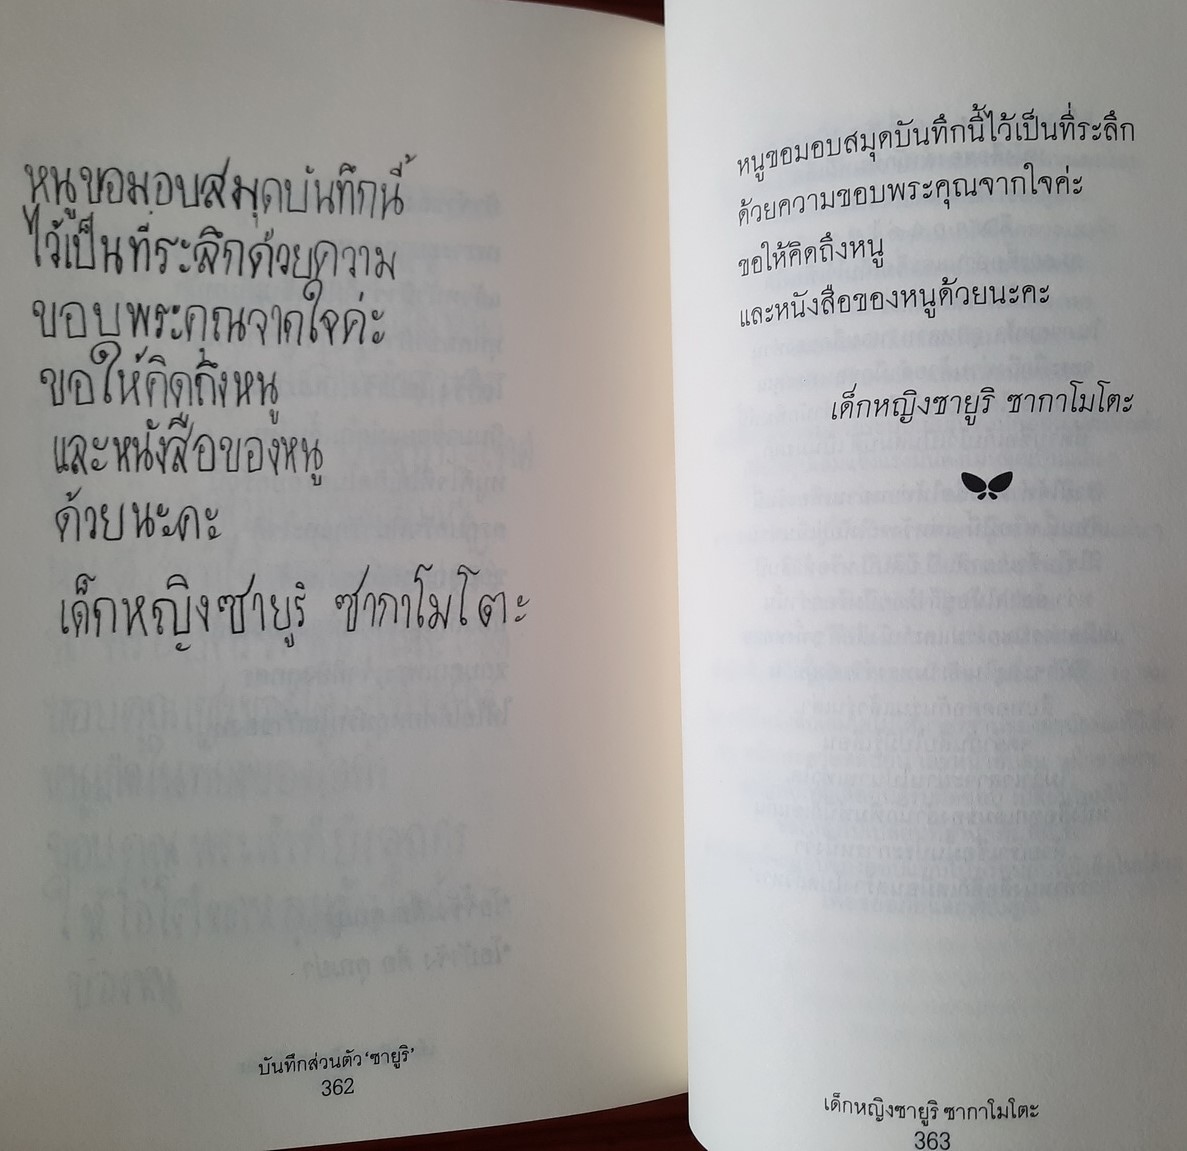 หนูขอมอบสมุดบันทึกนี้
ไว้เป็นที่ระลึกด้วยความ
ขอบพระคุณจากใจค่ะ
ขอให้คิดถึงหนู
และหนังสือของหนู
ด้วยนะคะ
เด็กหญิงซายูริ ซากาโมโตะ
บันทึกส่วนตัว ‘ซายูริ’
362
หนูขอมอบสมุดบันทึกนี้ไว้เป็นที่ระลึก
ด้วยความขอบพระคุณจากใจค่ะ
ขอให้คิดถึงหนู
และหนังสือของหนูด้วยนะคะ
เด็กหญิงซายูริ ซากาโมโตะ
เด็กหญิงซายูริ ซากาโมโตะ
363